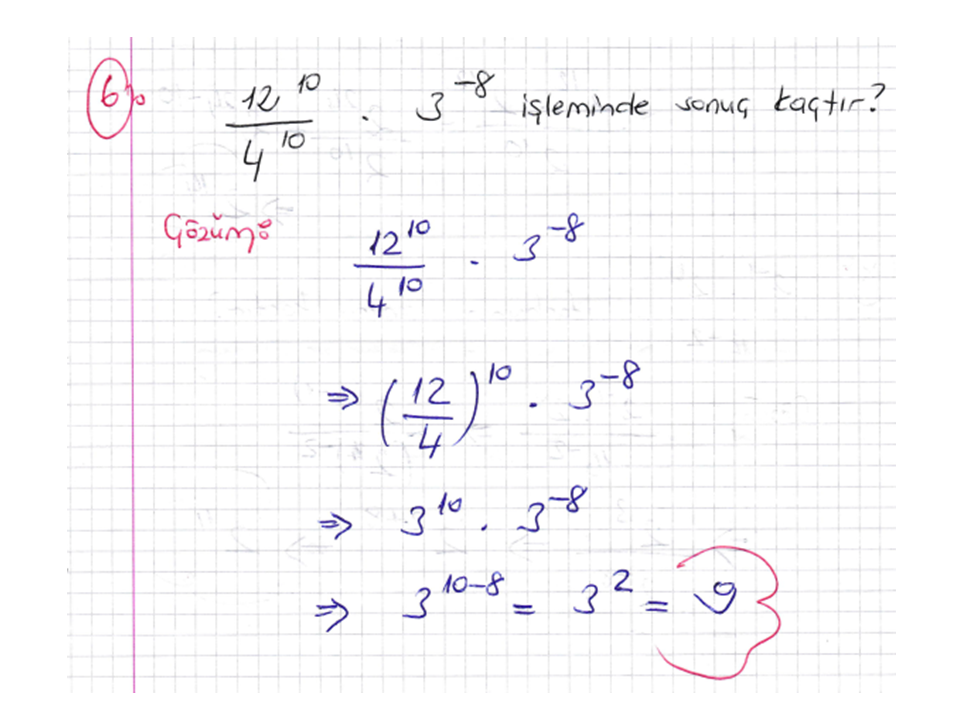 6) 12^10 / 4^10 . 3^-8 işleminde sonuç kaçtır?
Çözüm: 12^10 / 4^10 . 3^-8
⇒ (12/4)^10 . 3^-8
⇒ 3^10 . 3^-8
⇒ 3^10-8 = 3^2 = 9